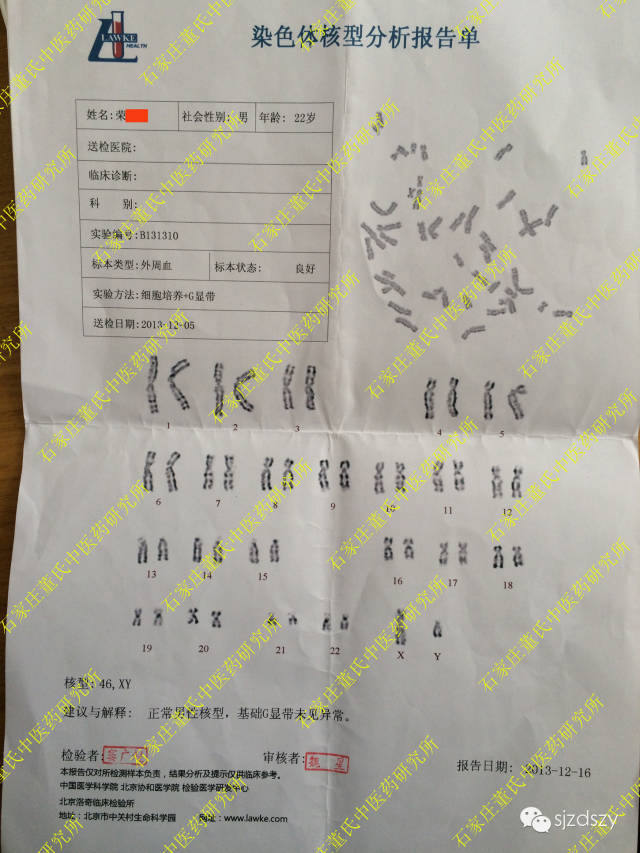 LAWKE
HEALTH
染色体核型分析报告单
姓名:荣
社会性别: 男
年龄: 22岁
送检医院:
临床诊断:
科 别:
实验编号:B131310
标本类型:外周血
标本状态: 良好
实验方法:细胞培养+G显带
送检日期:2013-12-05
1 2 3 4 5
6 7 8 9 10 11 12
13 14 15 16 17 18
19 20 21 22 X Y
核型:46,XY
建议与解释: 正常男性核型，基础G显带未见异常。
检验者:
审核者: 魏 星
报告日期: 2013-12-16
本报告仅对所检测样本负责，结果分析及提示仅供临床参考。
中国医学科学院 北京协和医学院 检验医学研发中心
北京洛奇临床检验所
地址: 北京市中关村生命科学园 网址: www.lawke.com
石家庄董氏中医药研究所
sjzdszy